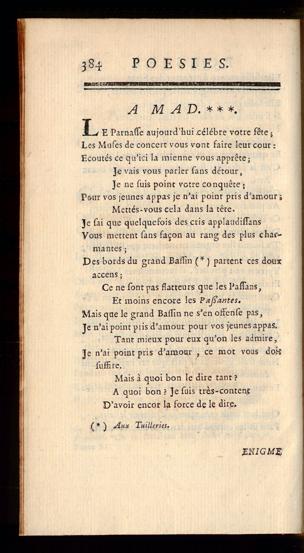 384 POESIES.
A MAD. ***.
LE Parnasse aujourd'hui célébre votre fête;
Les Muses de concert vous vont faire leur cour:
Ecoutés ce qu'ici la mienne vous apprête;
Je vais vous parler sans détour,
Je ne suis point votre conquête;
Pour vos jeunes appas je n'ai point pris d'amour;
Mettés-vous cela dans la tête.
Je sai que quelquefois des cris applaudissans
Vous mettent sans façon au rang des plus char-
mantes;
Des bords du grand Bassin (*) partent ces doux
accens;
Ce ne sont pas flatteurs que les Passans,
Et moins encore les Passantes.
Mais que le grand Bassin ne s'en offense pas,
Je n'ai point pris d'amour pour vos jeunes appas.
Tant mieux pour eux qu'on les admire,
Je n'ai point pris d'amour, ce mot vous doit
suffire.
Mais à quoi bon le dire tant?
A quoi bon? Je suis très-content
D'avoir encor la force de le dire.
(*) Aux Tuilleries.
ENIGME